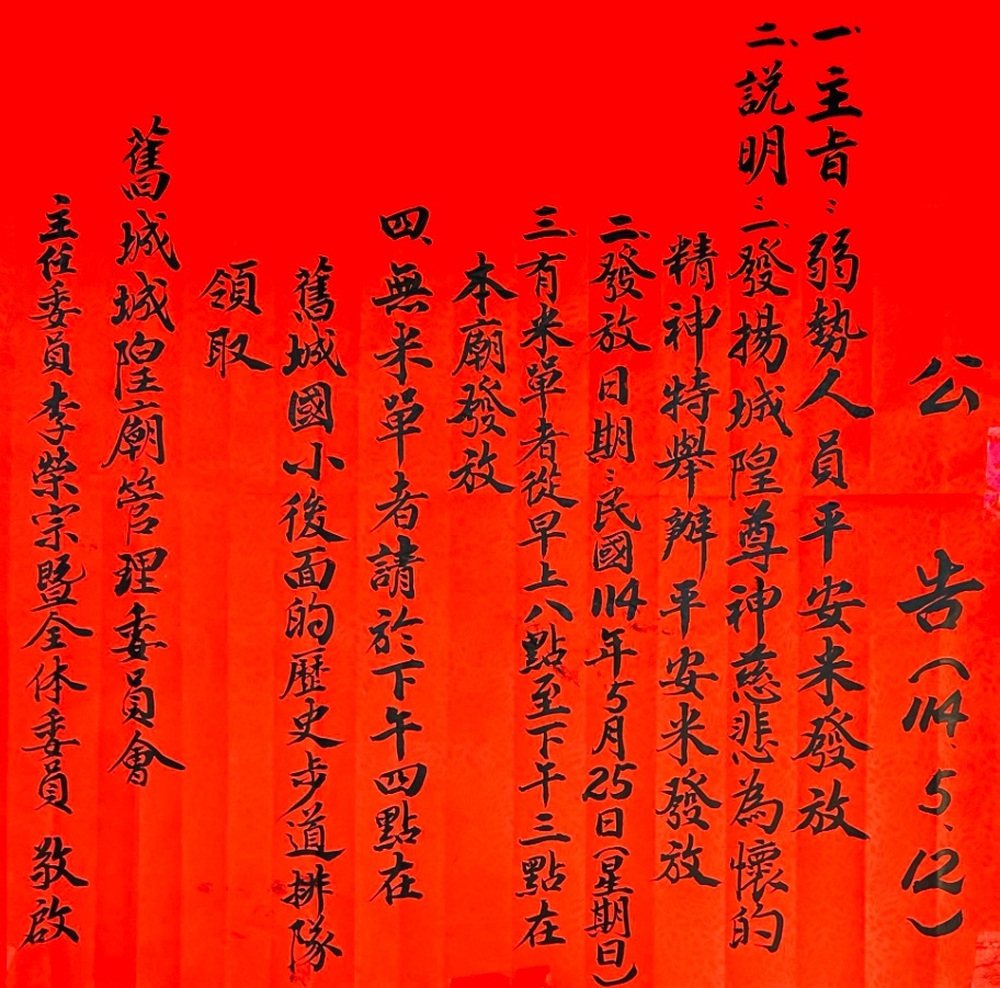 公告(114.5.12)
一、主旨:弱勢人員平安米發放
二、説明:一、發揚城隍尊神慈悲為懷的
精神特舉辦平安米發放
二、發放日期:民國114年5月25日(星期日)
三、有米單者從早上八點至下午三點在
本廟發放
四、無米單者請於下午四點在
舊城國小後面的歷史步道排隊
領取
舊城城隍廟管理委員會
主任委員李榮宗暨全体委員 敬啟